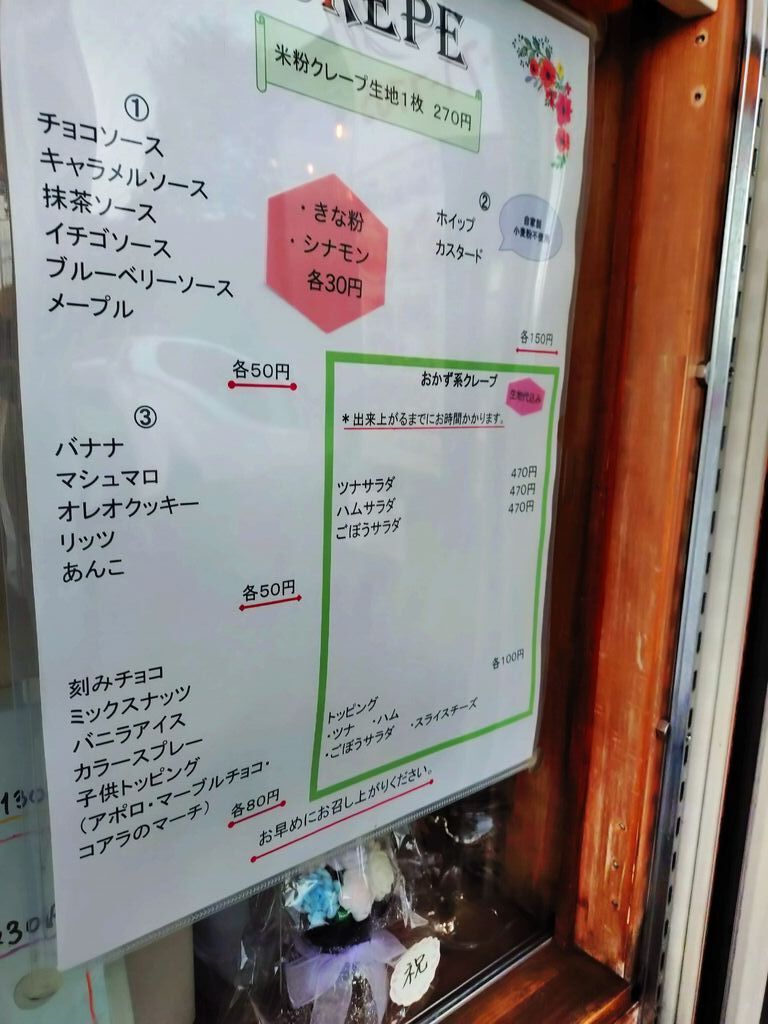 CREPE
米粉クレープ生地1枚 270円
①
チョコソース
キャラメルソース
抹茶ソース
イチゴソース
ブルーベリーソース
メープル
各50円
・きな粉
・シナモン
各30円
②
ホイップ
カスタード
自家製
小麦粉不使用
各150円
③
バナナ
マシュマロ
オレオクッキー
リッツ
あんこ
各50円
刻みチョコ
ミックスナッツ
バニラアイス
カラースプレー
子供トッピング
（アポロ・マーブルチョコ・
コアラのマーチ）
各80円
おかず系クレープ
生地代込み
＊出来上がるまでにお時間かかります。
ツナサラダ 470円
ハムサラダ 470円
ごぼうサラダ 470円
各100円
トッピング
・ツナ ・ハム
・ごぼうサラダ ・スライスチーズ
お早めにお召し上がりください。
祝